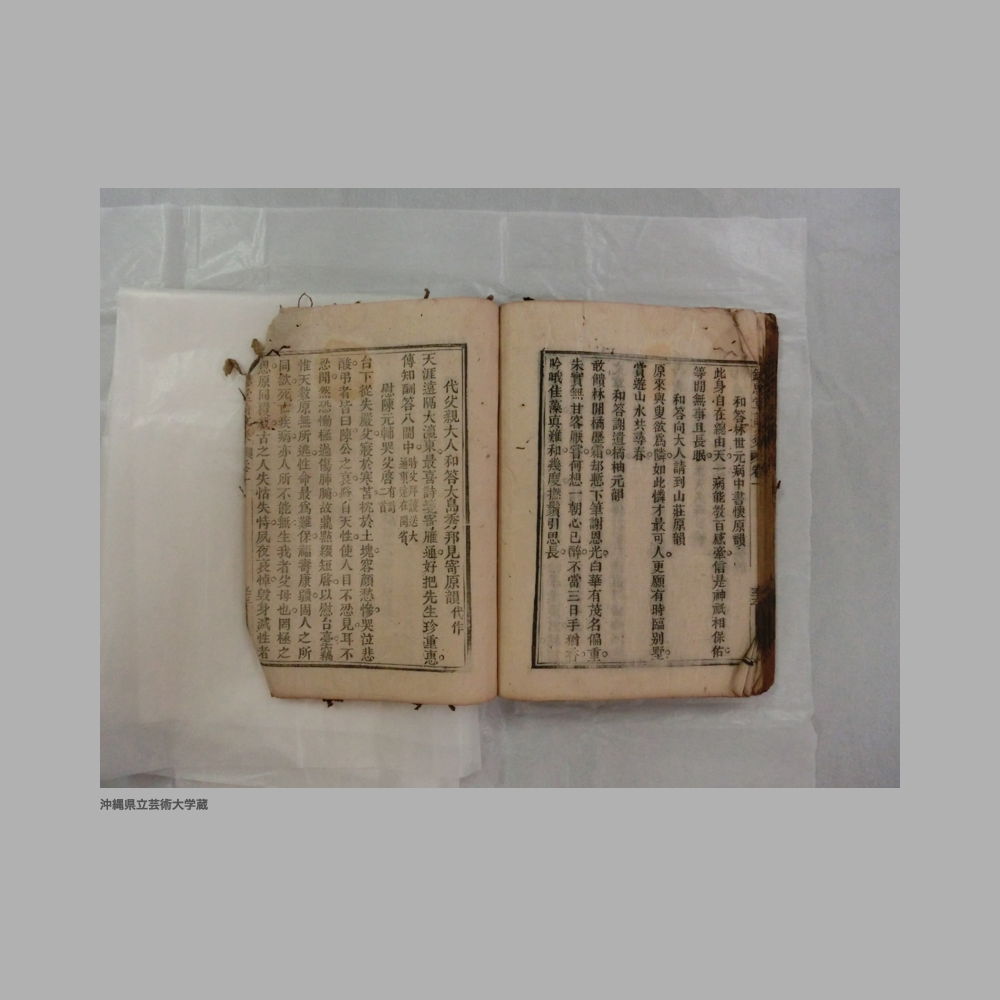 和答林世元病中書懷原韻
此身自在總由天一病能教百感牽信是神祇相保佑
等閒無事且長眠
和答向大人請到山莊原韻
原來與更欲為隣如此憐才最可人更願有時臨別墅
賞遊山水共尋春
和答謝道橘柚元韻
敢饋林間橘歷霜却慙下筆謝恩光白華有茂名偏重
朱實無甘客厭嘗何想一朝心已醉不當三日手猶香
吟哦佳藻真難和幾度撫鬚引思長
代父親大人和答大島秀邦見寄原韻代作
天涯遠隔大瀛東最喜詩箋寄雁通好把先生珍重意
傳知酬答八閩中
慰陳元輔哭父啓有二首
台下從失嚴父寢於寒苫枕於土塊容顏愁慘哭泣悲
酸弔者皆曰陳公之哀出自天性使人目不忍見耳不
忍聞然恐慟極過傷肺腑故稟點綴短啓以慰台臺竊
惟天數原無所逃性命最為難保福壽康彊固人之所
同欲死亡疾病亦人所不能無生我者父母也罔極之
恩原同 古之人失怙失恃夙夜哀悼毀身滅性者
沖縄県立芸術大学蔵